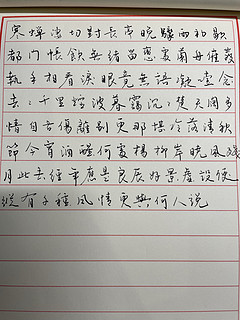 寒蝉凄切对长亭晚骤雨初歇
都门帐饮无绪留恋处兰舟催发
执手相看泪眼竟无语凝噎念
去去千里烟波暮霭沉沉楚天阔多
情自古伤离别更那堪冷落清秋
节今宵酒醒何处杨柳岸晓风残
月此去经年应是良辰好景虚设便
纵有千种风情更与何人说